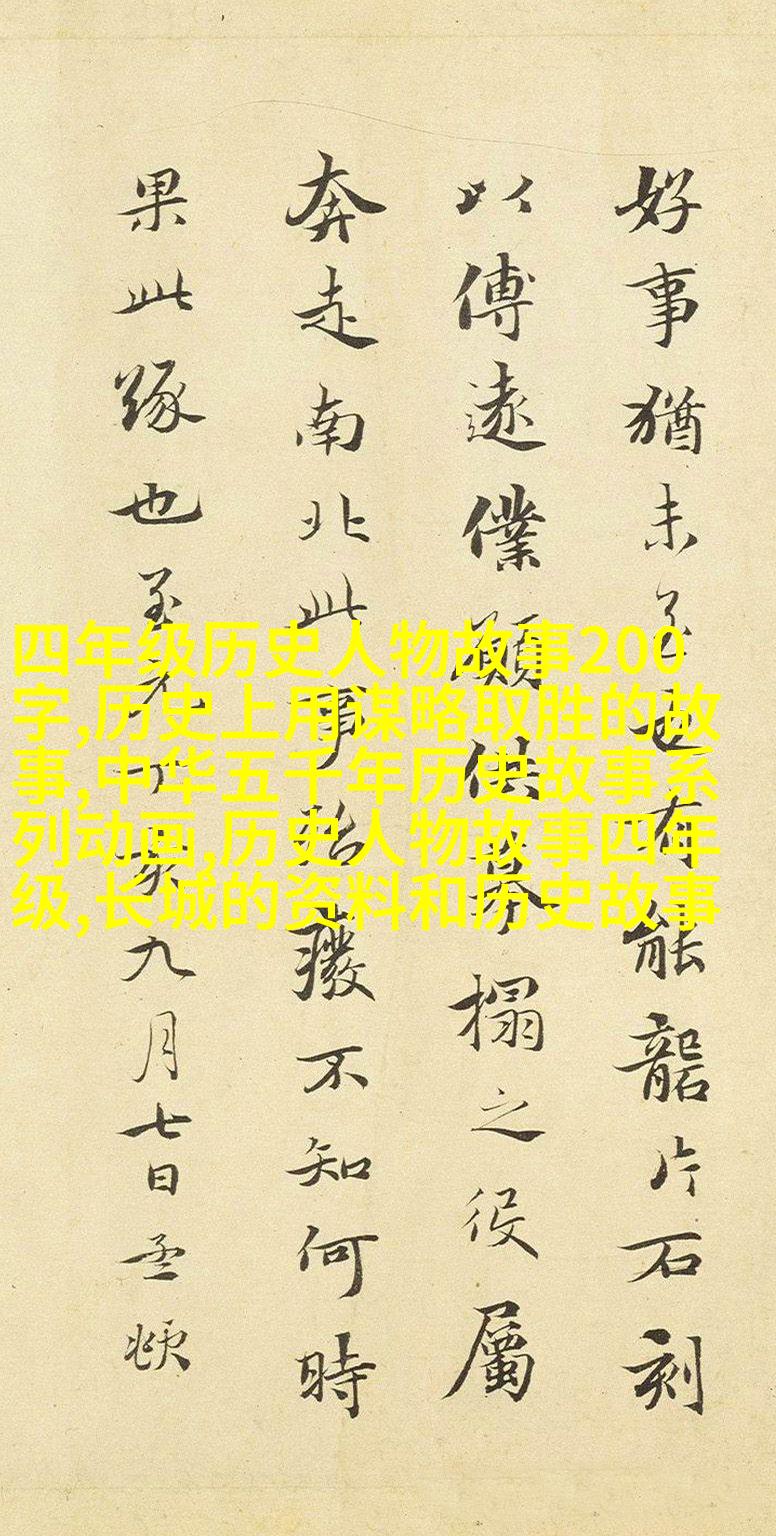 好事猶未至也有能礱片石刻
以傅遠僕願供摹搨之役屬
奔走南北此事殆廢不知何時
果此緣也至元丁亥九月七日孟頫
四年级历史人物故事200
字,历史上用谋略取胜的故
事,中华五千年历史故事系
列动画,历史人物故事四年
级,长城的资料和历史故事